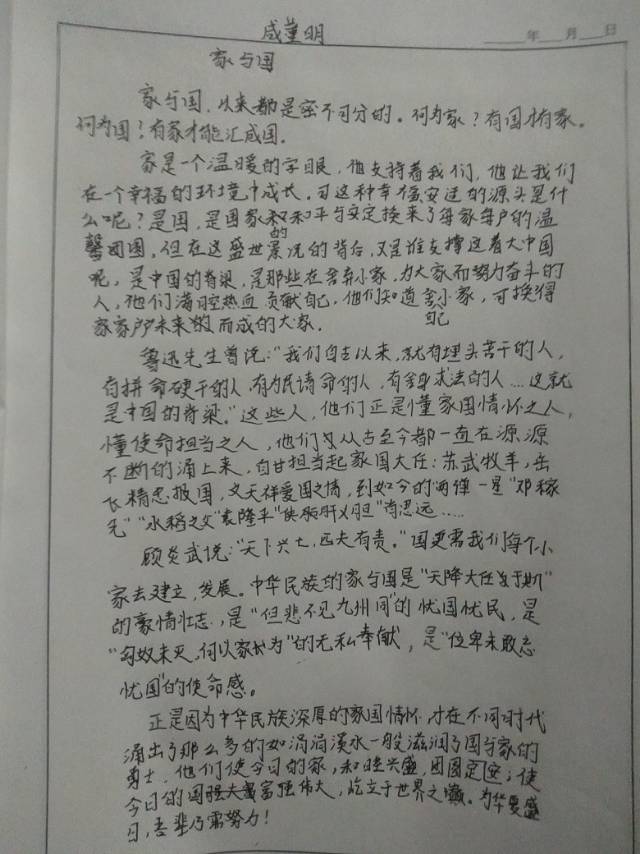 年 月 日
成董明
家与国
家与国，以来都是密不可分的。何为家？有国才有家。
何为国？有家才能汇成国。
家是一个温暖的字眼，他支持着我们，他让我们
在一个幸福的环境中成长。可这种幸福安适的源头是什
么呢？是国，是国家和平与安定换来了每家每户的温
馨团圆，但在这盛世的景况的背后，又是谁支撑这着大中国
呢，是中国的脊梁，是那些在舍弃小家，为大家而努力奋斗的
人，他们满腔热血贡献自己，他们知道舍自己小家，可换得
家家户户未来的而成的大家。
鲁迅先生曾说：“我们自古以来，就有埋头苦干的人，
有拼命硬干的人，有为民请命的人，有舍身求法的人....这就
是中国的脊梁。”这些人，他们正是懂家国情怀之人，
懂使命担当之人，他们从古至今都一直在源源
不断的涌上来，自甘担当起家国大任：苏武牧羊，岳
飞精忠报国，文天祥爱国之情，到如今的两弹一星“邓稼
先”“水稻之父”袁隆平“侠肝义胆”肖思远.....
顾炎武说：“天下兴亡，匹夫有责。”国更需我们每个小
家去建立，发展。中华民族的家与国是“天降大任于斯”
的豪情壮志，是“但悲不见九州同”的忧国忧民，是
“匈奴未灭，何以家为”的无私奉献，是“位卑未敢忘
忧国”的使命感。
正是因为中华民族深厚的家国情怀，才在不同时代
涌出了那么多的如涓涓溪水一般滋润了国与家的
勇士，他们使今日的家，和睦兴盛，团圆定安；使
今日的国富强伟大，屹立于世界之巅。为华夏盛
日，吾辈乃需努力！